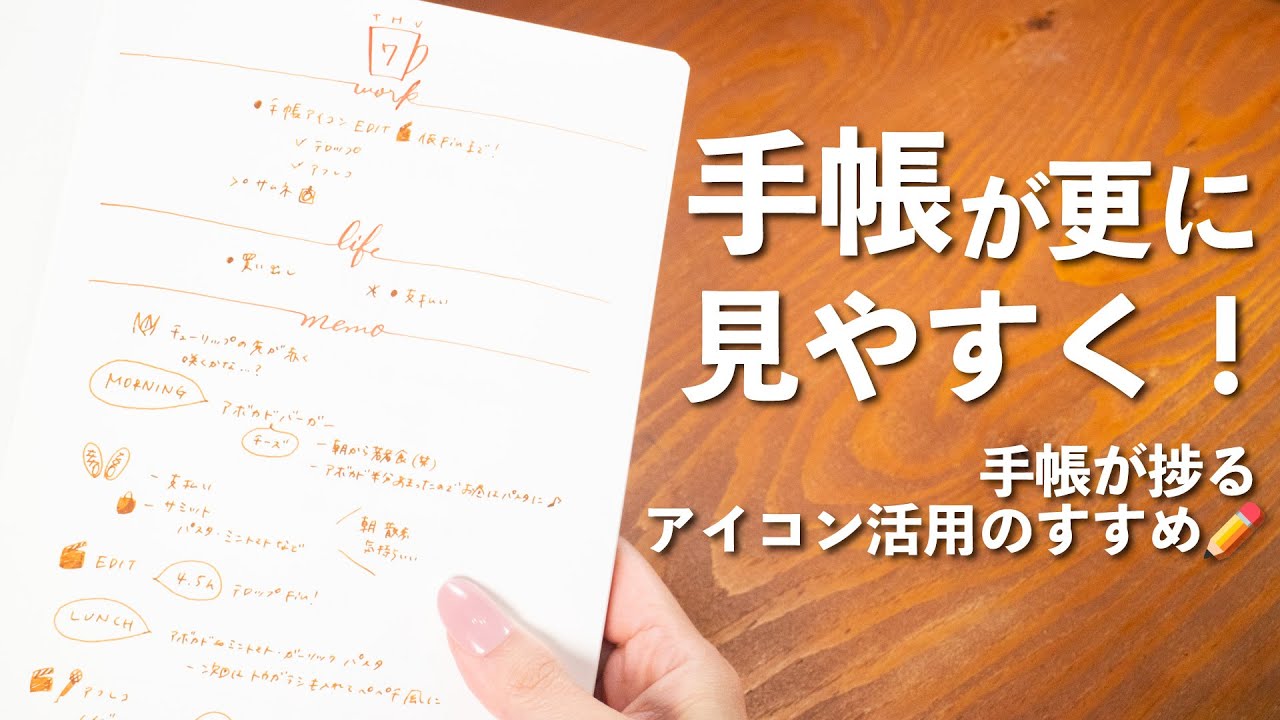 THU
7
work
• 手帳アイコン EDIT 仮Finまで!
✓ テロップ
✓ アフレコ
> サムネ
life
• 買い出し
• 支払い
memo
チューリップの先が赤く
咲くかな…?
MORNING
アボカドバーガー
チーズ
- 朝から暑食(笑)
- アボカド半分あまったのでお昼はパスタに♪
- 支払い
- サミット
パスタ・ミニトマトなど
朝 散歩
気持ちいい
EDIT
4.5h
テロップFin!
LUNCH
アボカド ミニトマト・ガーリック パスタ
- 次回はトウガラシも入れてペペチ風に
アフレコ
手帳が更に
見やすく!
手帳が捗る
アイコン活用のすすめ